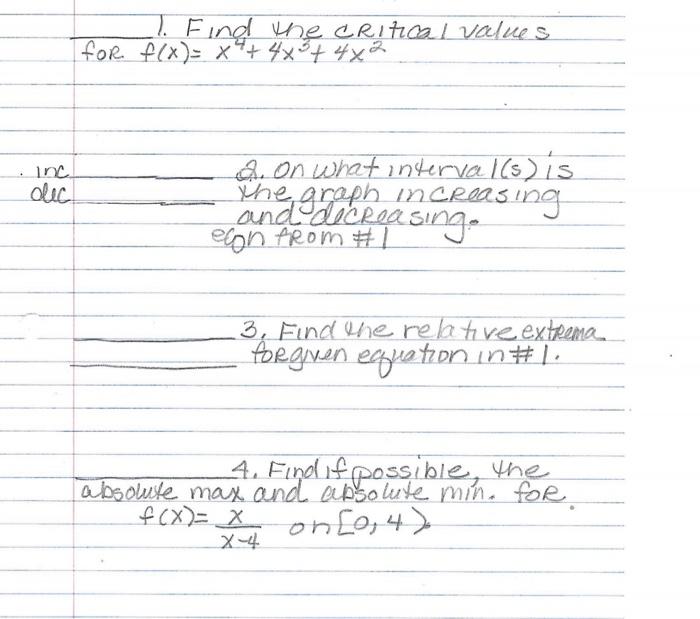 1. Find the critical values
for f(x)= x⁴+ 4x³+ 4x²
inc 2. on what interval(s) is
dec the graph increasing
and decreasing.
eqn from #1
3. Find the relative extrema
for given equation in #1.
4. Find if possible, the
absolute max and absolute min. for
f(x)= x/x-4 on [0,4)